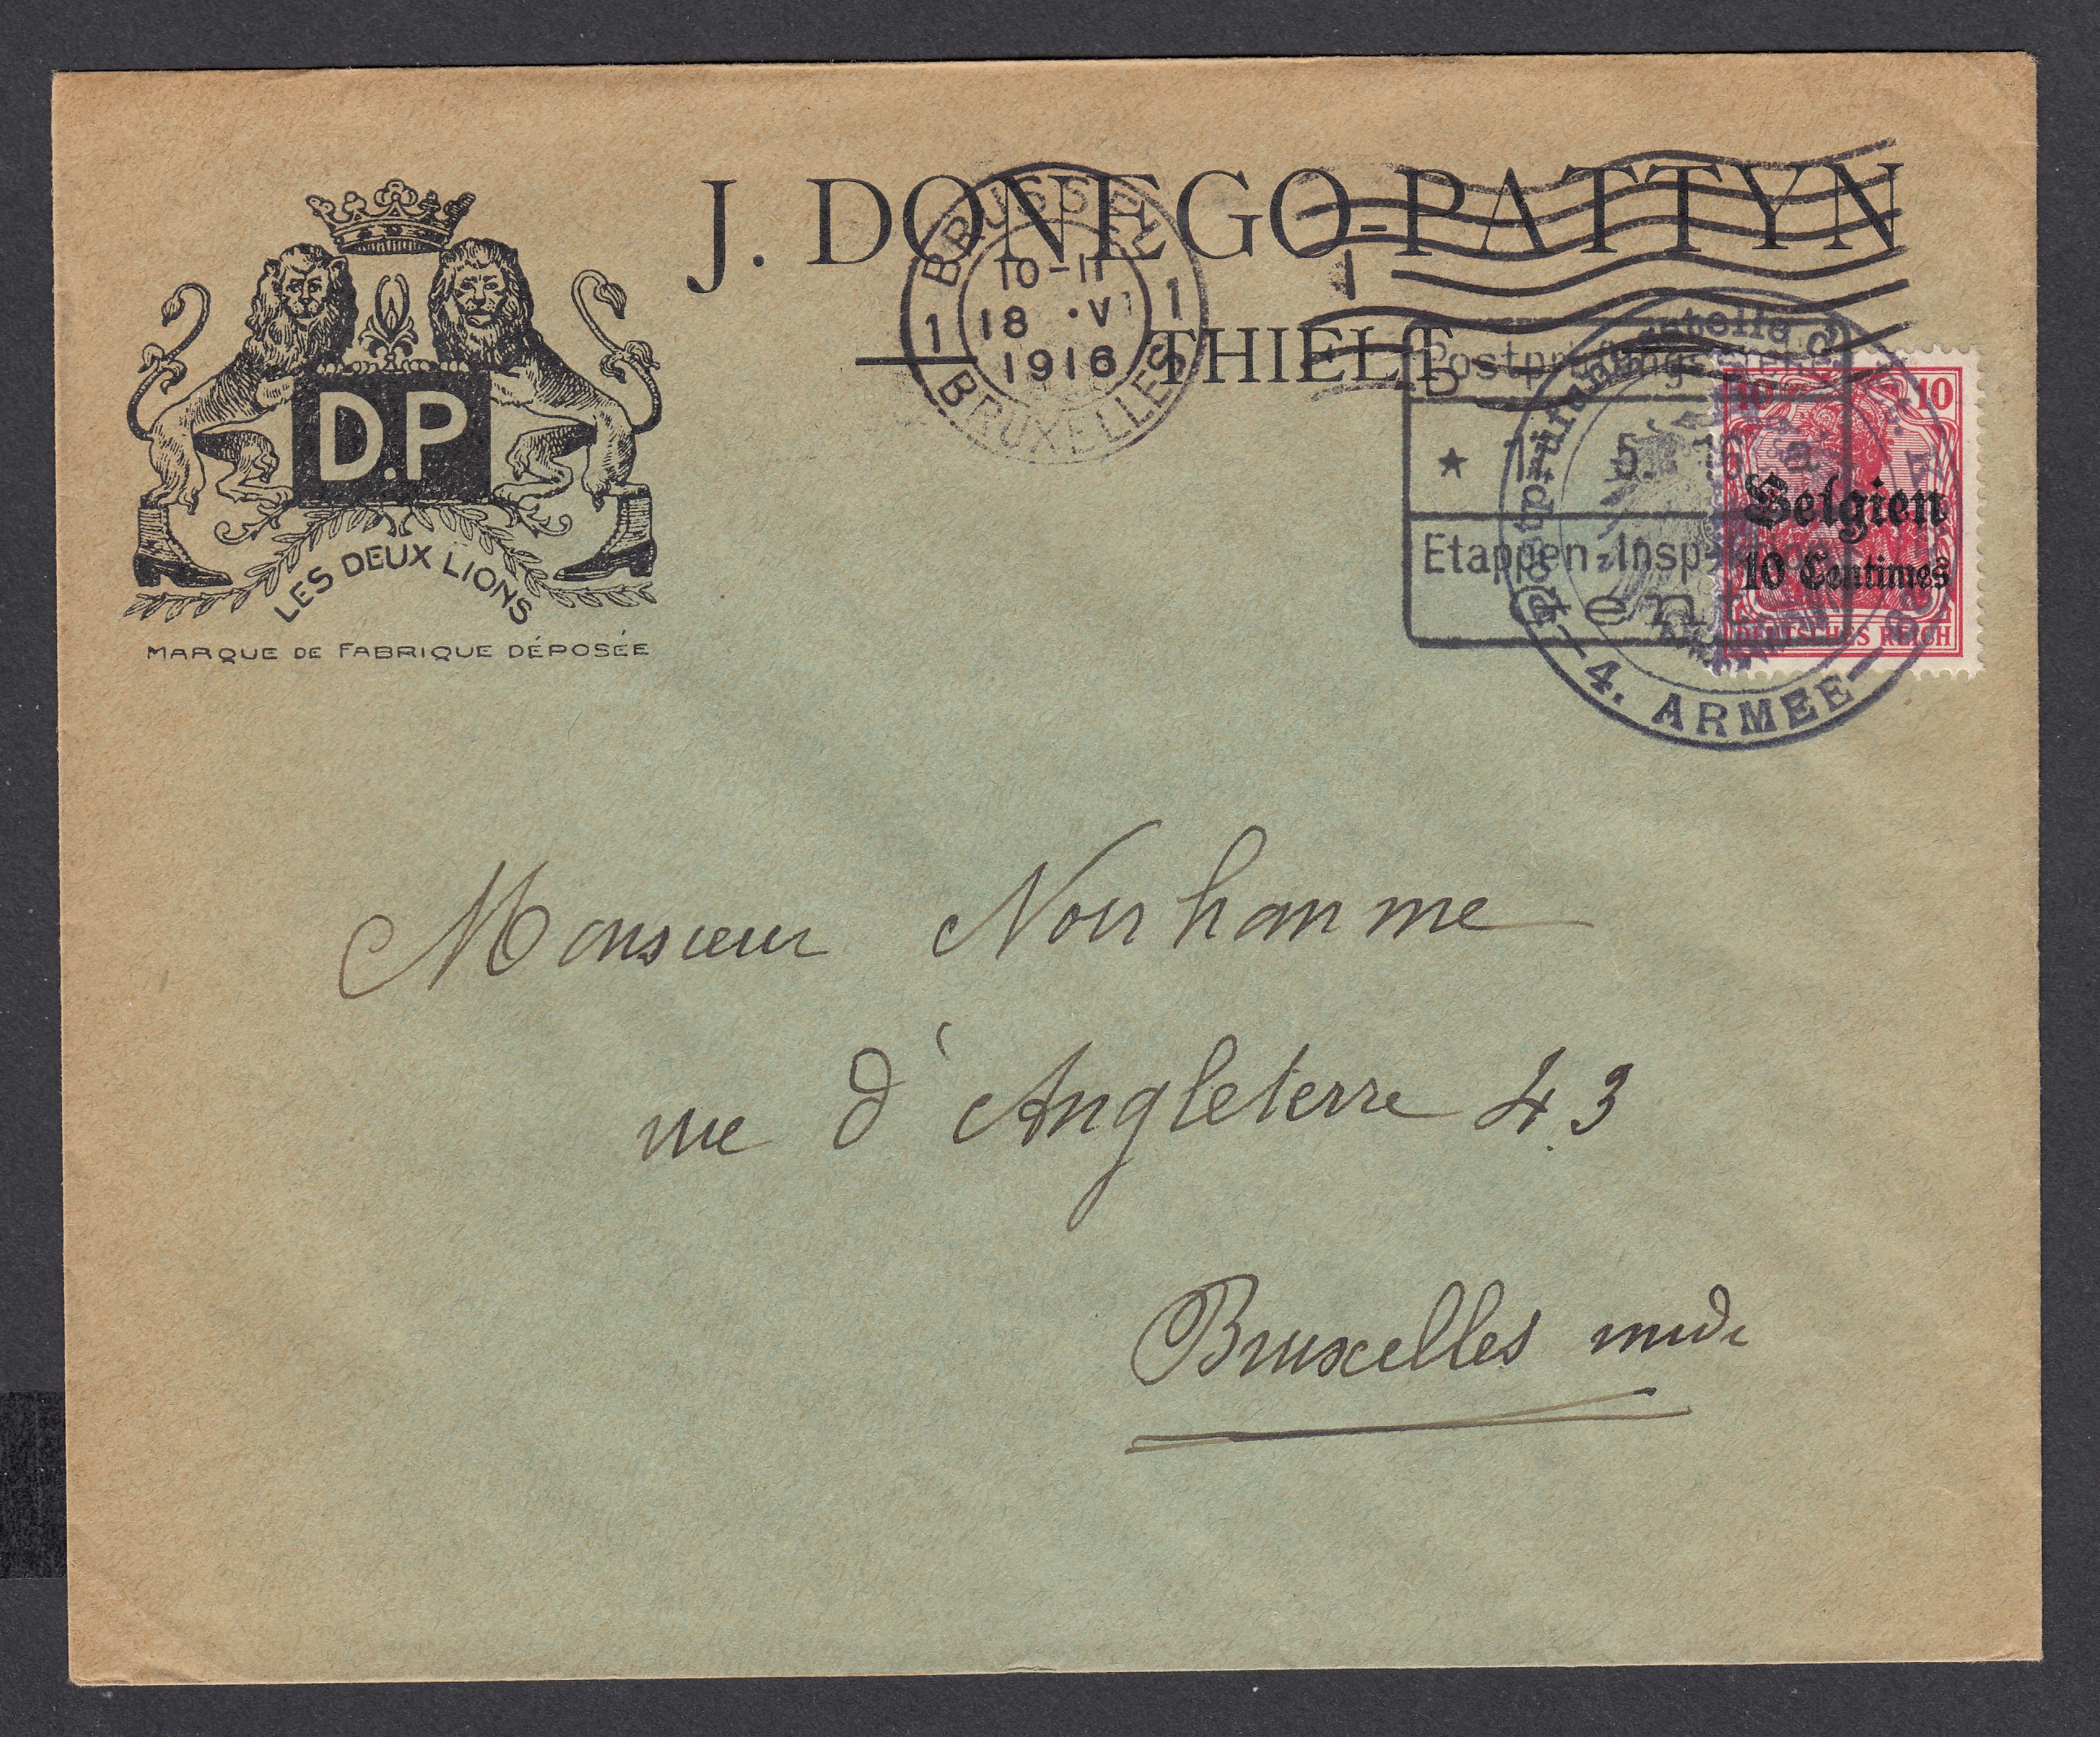 J. DONEGO-PATTYN
THIELT
D.P
LES DEUX LIONS
MARQUE DE FABRIQUE DÉPOSÉE
BRUSSEL
10-11
1 18 ·VI 1
1916
BRUXELLES
Postprüfungs
★ 1 5. 16
Etappen-Insp
Gent
Postprüfungsstelle d.
4. ARMEE
10 10
Belgien
10 Centimes
DEUTSCHES REICH
Monsieur
rue d'Angleterre 43
Bruxelles midi